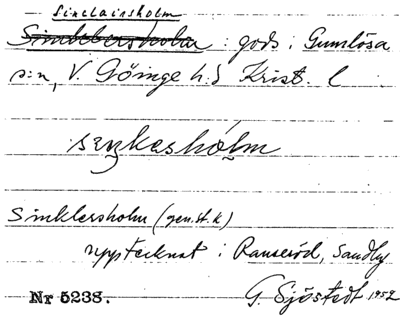 Sinclairsholm
Sinklersholm gods i Gumlösa
s:n, V. Göinge h:d Krist. l
sɛŋkəshólm
Sinklersholm (gen.st.k)
upptecknat i Ranseröd, Sandby
Nr 5238. G. Sjöstedt 1952